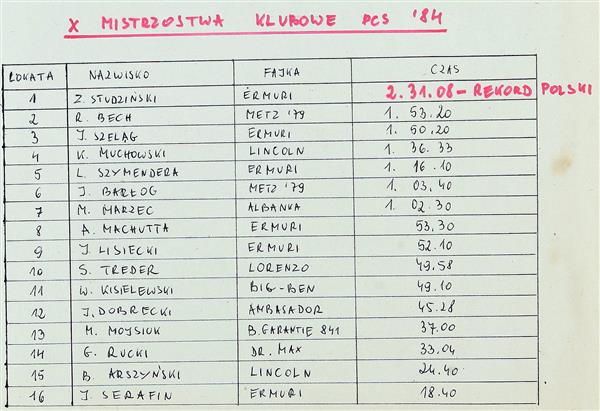 X MISTRZOSTWA KLUBOWE PCS '84
LOKATA NAZWISKO FAJKA CZAS
1 Z. STUDZIŃSKI ERMURI 2.31.08 - REKORD POLSKI
2 R. BECH METZ '79 1. 53.20
3 J. SZELĄG ERMURI 1. 50.20
4 K. MUCHOWSKI LINCOLN 1. 36.33
5 L. SZYMENDERA ERMURI 1. 16.10
6 J. BARŁOG METZ '79 1. 03.40
7 M. MARZEC ALBANKA 1. 02.30
8 A. MACHUTTA ERMURI 53.30
9 J. LISIECKI ERMURI 52.10
10 S. TREDER LORENZO 49.58
11 W. KISIELEWSKI BIG-BEN 49.10
12 J. DOBRECKI AMBASADOR 45.28
13 M. MOJSIUK B. GARANTIE 841 37.00
14 G. RUCKI DR. MAX 33.04
15 B. ARSZYŃSKI LINCOLN 24.40
16 J. SERAFIN ERMURI 18.40